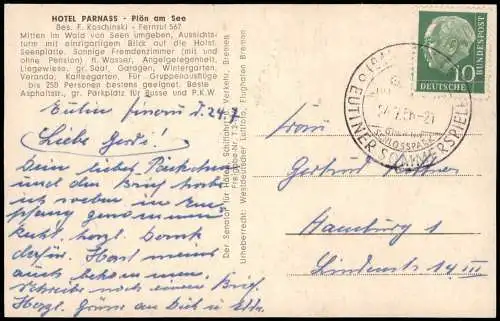 HOTEL PARNASS - Plön am See
Bes. F. Koschinski - Fernruf 567
Mitten im Wald von Seen umgeben, Aussichts-
turm mit einzigartigem Blick auf die Holst.
Seenplatte. Sonnige Fremdenzimmer (mit und
ohne Pension) fl. Wasser, Angelgelegenheit,
Liegewiese, gr. Saal, Garagen, Wintergarten,
Veranda, Kaffeegarten. Für Gruppenausflüge
bis 250 Personen bestens geeignet. Beste
Asphaltstr., gr. Parkplätz für Busse und P.K.W.
Eutin, d. 24.7
Liebe Gerdi!
Dein liebes Päckchen
und den Brief habe
ich soeben in Em-
pfang genommen
hab herzl. Dank
dafür. Hast meinen
auch bekommen.
Schreibe noch einen Brief.
Herzl. Grüße an Dich u. Eltn.
Der Senator für Häfen, Schiffahrt u. Verkehr, Bremen
Urheberrecht: Westdeutscher Luftfoto, Flughafen Bremen
DEUTSCHE
BUNDESPOST
10
EUTINER SOMMERSPIELE
SCHLOSSPARK
Frau
Gertrud
Hamburg 1
Lindenstr. 14 III